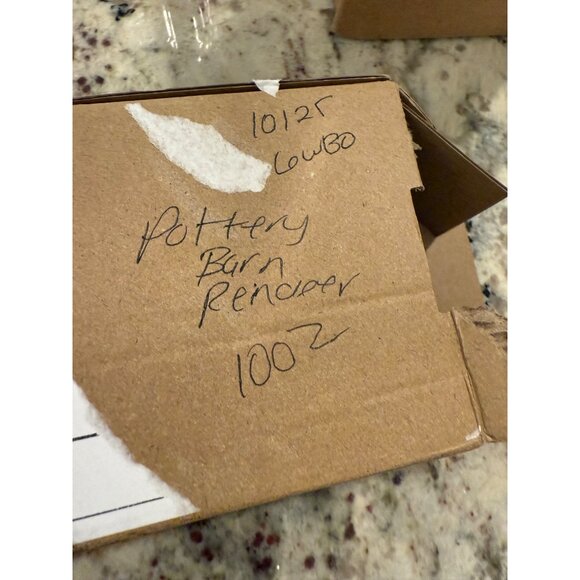 1012r
6wBO
Pottery
Barn
Reindeer
1002